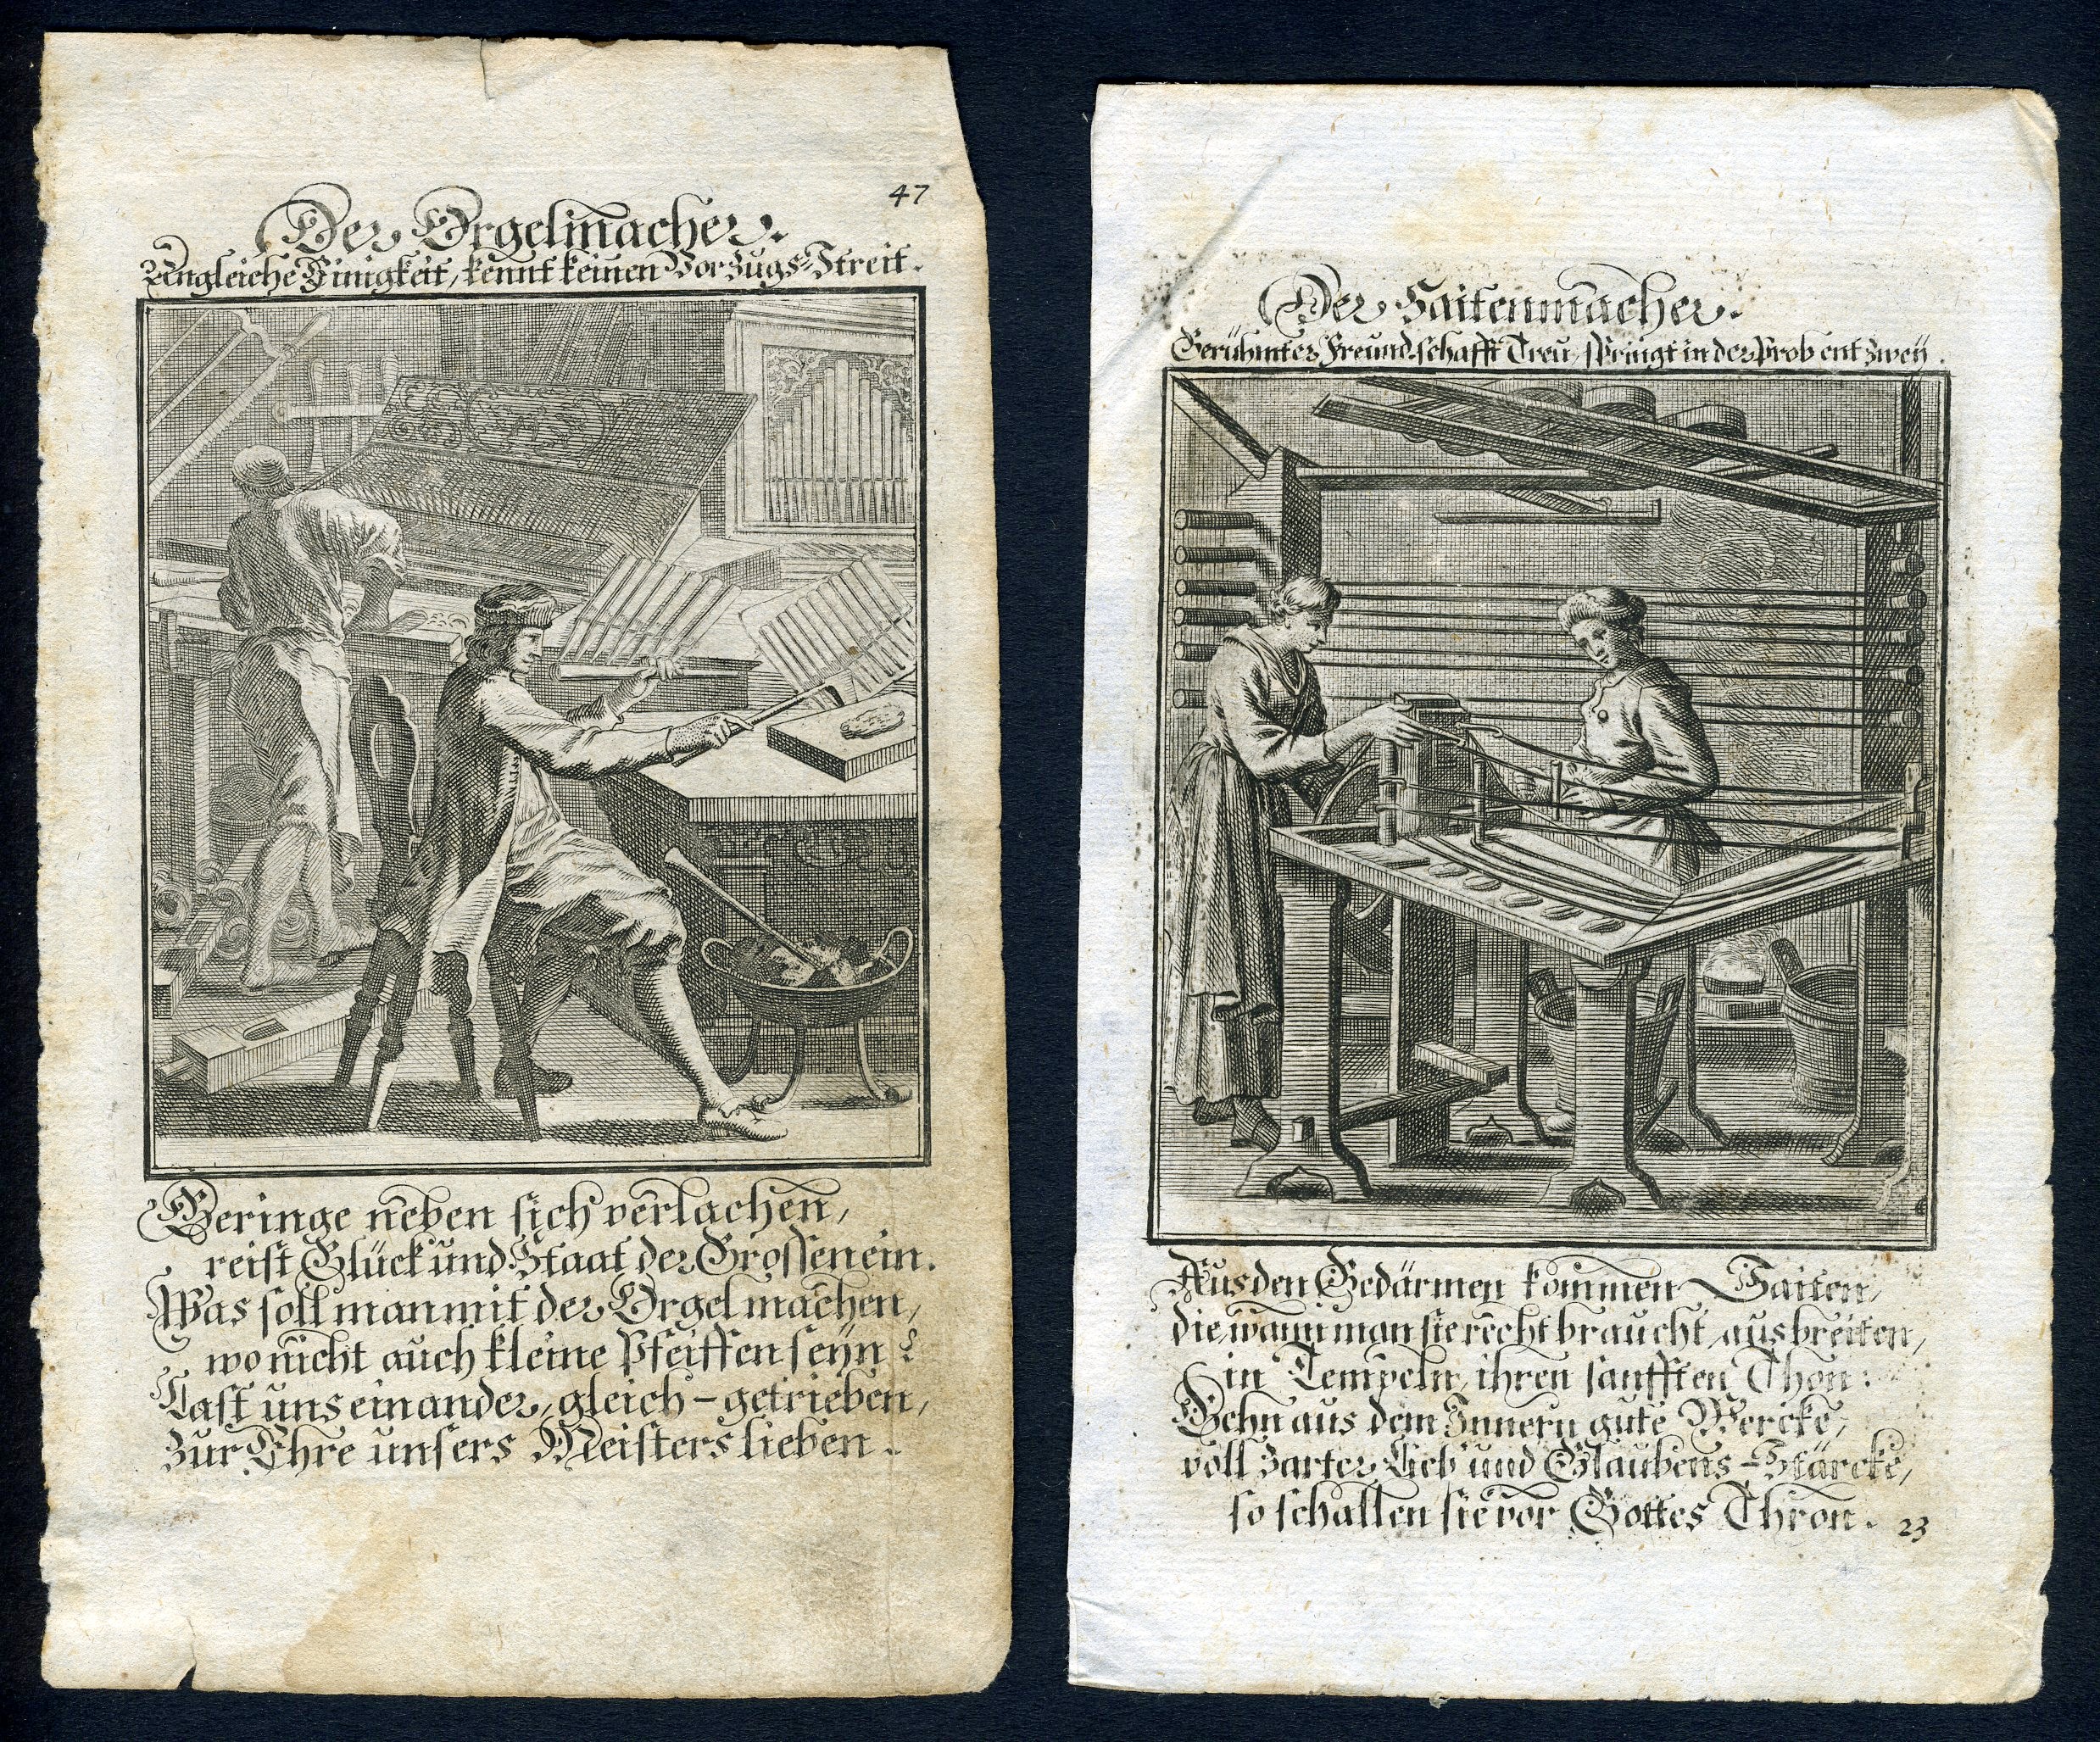 47
Der Orgelmacher.
Ungleiche Einigkeit, kennt keinen Vorzugs-Streit.
Geringe neben sich verlachen,
reist Glück und Staat der Grossen ein.
Was soll man mit der Orgel machen,
wo nicht auch kleine Pfeiffen seÿn?
Last uns einander, gleich-getrieben,
zur Ehre unsers Meisters lieben.
Der Saitenmacher.
Berühmter Freundschafft Treu, springt in der Prob entzweÿ.
Aus den Gedärmen kom̄en Saiten,
die, wann man sie recht braucht, ausbreiten,
in Tempeln, ihren sanfften Thon:
Gehn aus dem Innern gute Wercke,
voll zarter Lieb und Glaubens-Stärcke,
so schallen sie vor Gottes Thron.
23